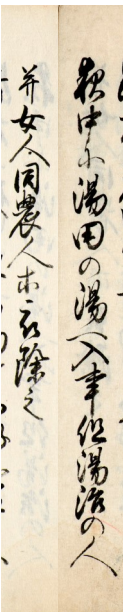 夜中に湯田の湯へ入事但湯治の人
并女人同農人等可除之